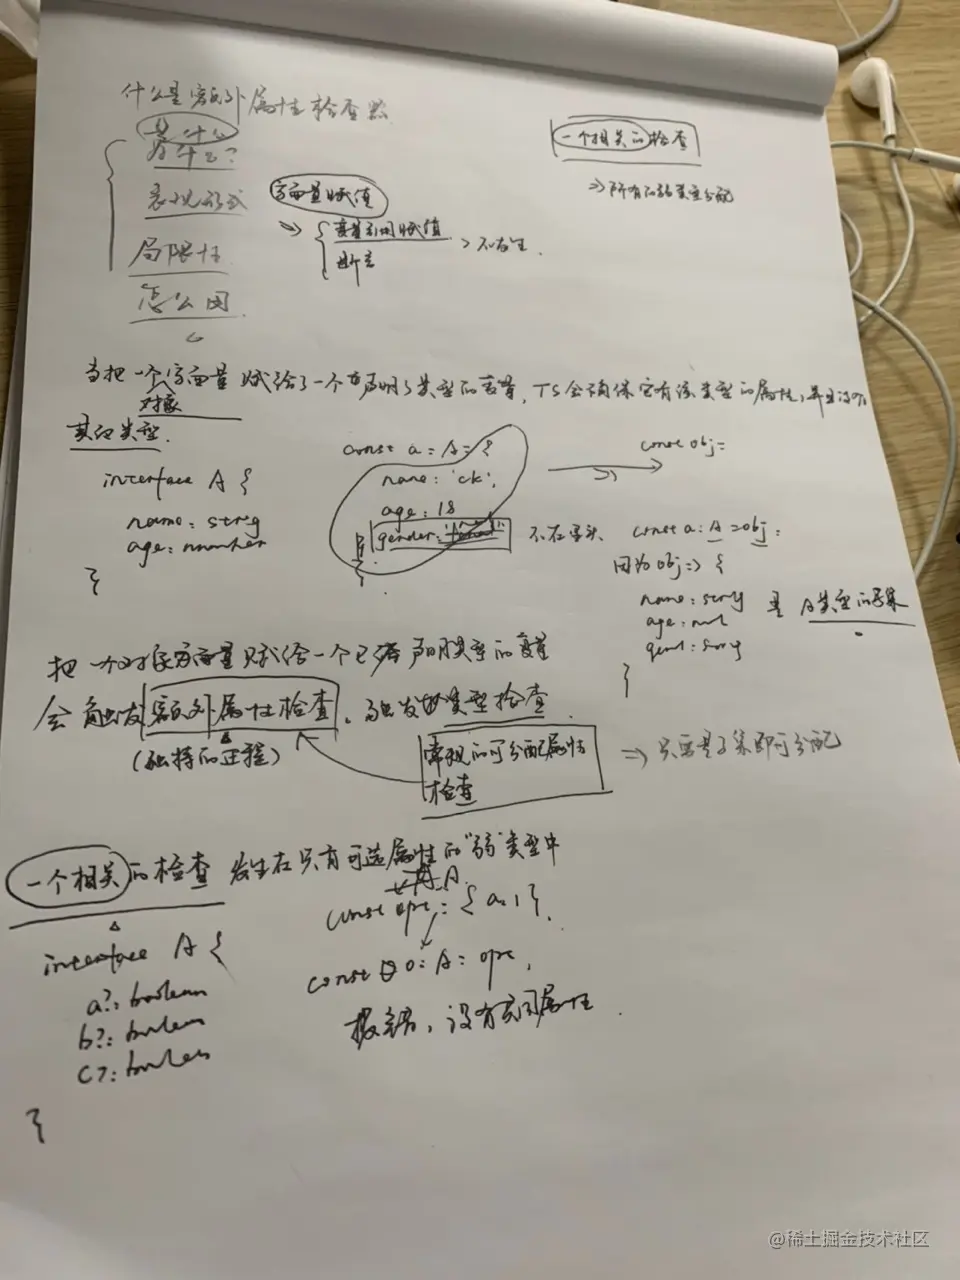 什么是额外属性检查
是什么
为什么?
表现形式
局限性
怎么用
字面量赋值
=> { 变量引用赋值
断言
> 不发生.
一个相关的检查
=> 所有的弱类型分配
当把一个字面量赋给了一个声明了类型的变量, TS会确保它有该类型的属性, 并且没有
对象
其他类型.
interface A {
name: string
age: number
}
const a: A = {
name: 'ck',
age: 18
gender:
}
不在
const obj =
const a: A = obj;
因为 obj => {
name: string 是 A类型的子集
age:
}
把一个对象字面量赋给一个已经声明类型的变量
会触发 额外属性检查.
类型检查
(独特的过程)
常规的可分配属性
检查
=> 只要是子集即可分配
一个相关的检查 发生在只有可选属性的"弱"类型中
interface A {
a?: boolean
b?: boolean
c?: boolean
}
const opt = { a: 1 }.
const o: A = opt,
报错, 没有共同属性.
@稀土掘金技术社区